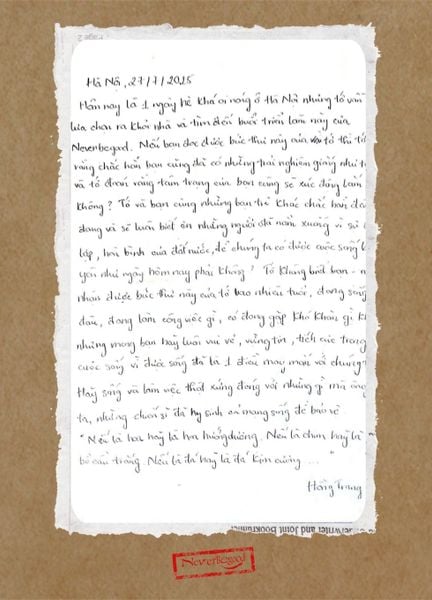 Hà Nội, 27/7/2025
Hôm nay là 1 ngày hè khá oi nóng ở Hà Nội nhưng tớ vẫn
lựa chọn ra khỏi nhà và tìm đến buổi triển lãm này của
Neverbegood. Nếu bạn đọc được bức thư này của tớ thì tớ
rằng chắc hẳn bạn cũng đã có những trải nghiệm giống như t
và tớ đoán rằng tâm trạng của bạn cũng sẽ xúc động lắm
không? Tớ và bạn cùng những bạn trẻ khác chắc hẳn đã
đang và sẽ luôn biết ơn những người đã nằm xuống vì sự
lập, hoà bình của đất nước, để chúng ta có được cuộc sống b
yên như ngày hôm nay phải không? Tớ không biết bạn - n
nhận được bức thư này của tớ bao nhiêu tuổi, đang sống
đâu, đang làm công việc gì, có đang gặp khó khăn gì k
nhưng mong bạn hãy luôn vui vẻ, vững tin, tích cực trong
cuộc sống vì được sống đã là 1 điều may mắn với chúng
Hãy sống và làm việc thật xứng đáng với những gì mà ông
ta, những chiến sĩ đã hy sinh cả mạng sống để bảo vệ.
"Nếu là hoa hãy là hoa hướng dương. Nếu là chim hãy là
bồ câu trắng. Nếu là đá hãy là đá kim cương ..."
Hồng Trang
erwriter and Joint Bookrunner
Page 2
Neverbegood